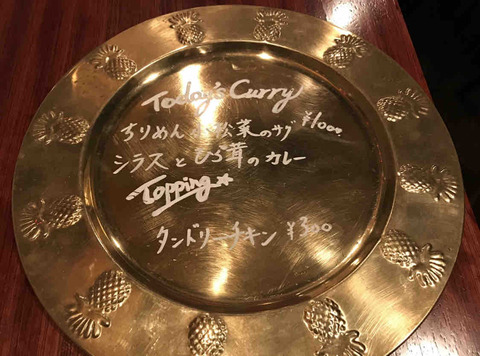 Today's Curry
ちりめん小松菜のサグ ¥1000
シラスとひら茸のカレー
Topping☆
タンドリーチキン ¥300